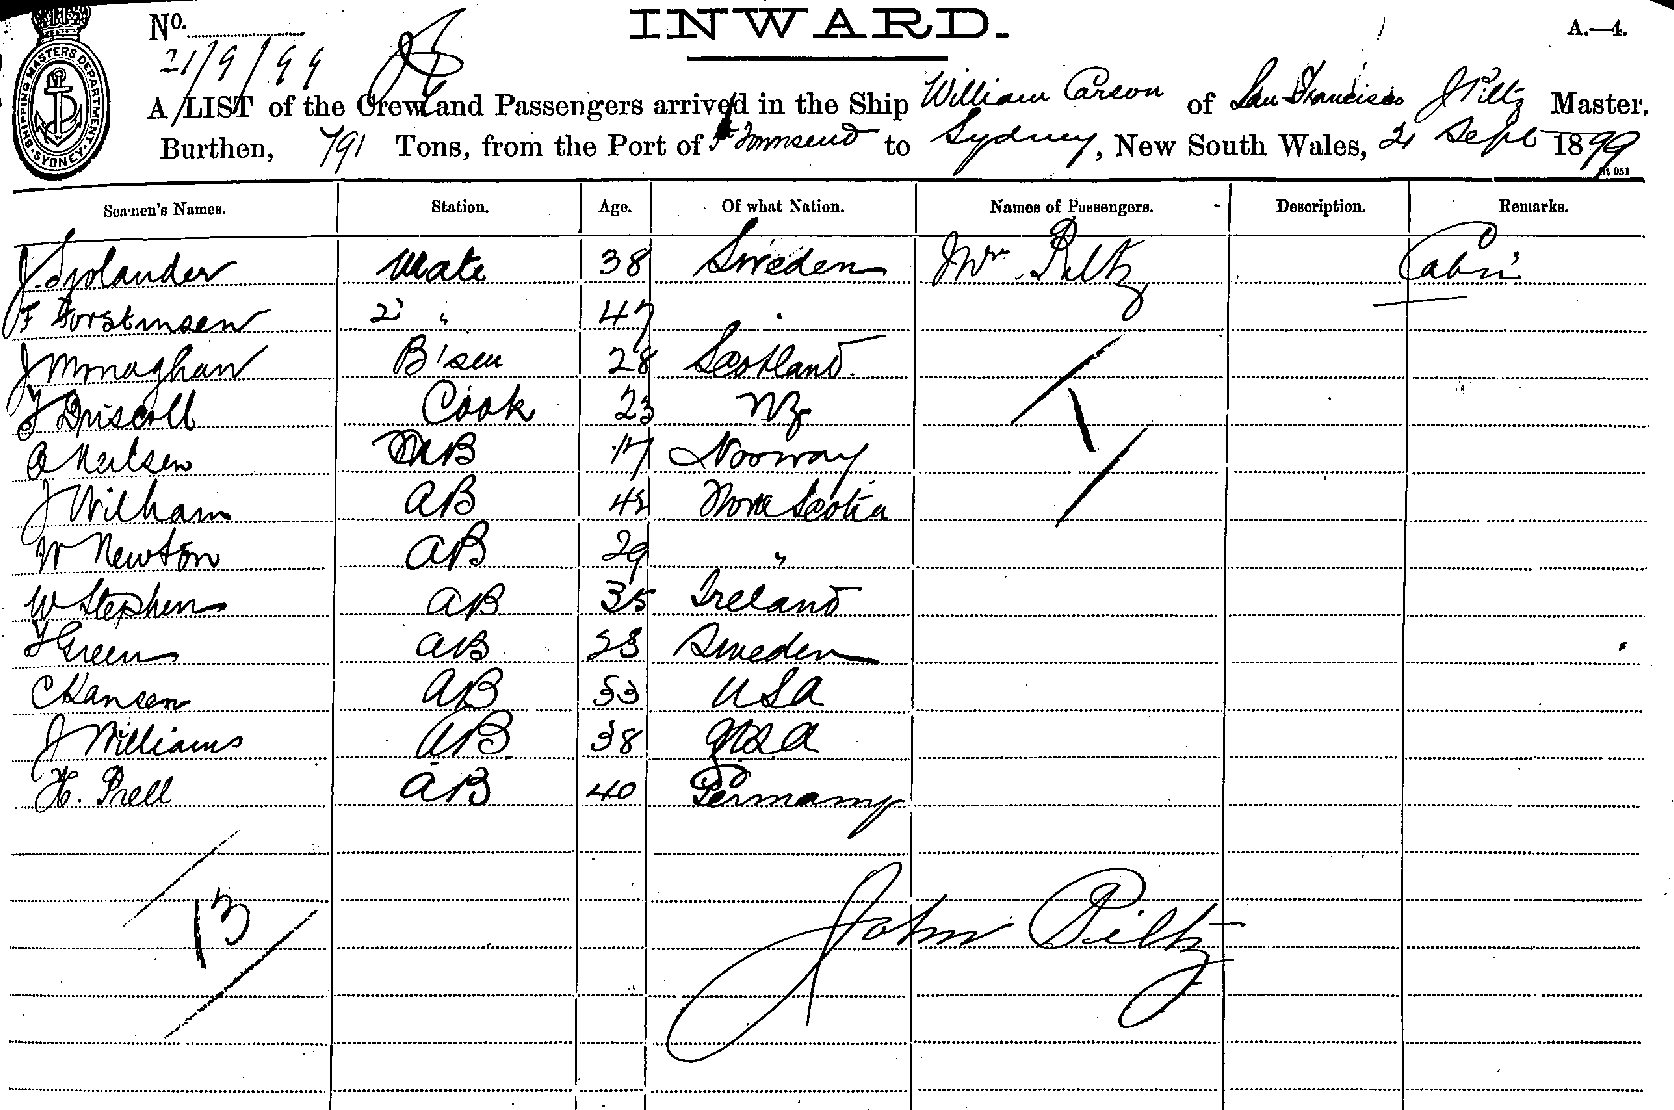 No. INWARD. A.—4.
21/9/99
SHIPPING MASTERS DEPARTMENT SYDNEY
A LIST of the Crew and Passengers arrived in the Ship William Carson of San Francisco J Piltz Master,
Burthen, 791 Tons, from the Port of Pt Townsend to Sydney, New South Wales, 21 Sept 1899
Seamen's Names. Station. Age. Of what Nation. Names of Passengers. Description. Remarks.
Mate 38 Sweden Mrs Piltz Cabin
F Torstinsen 2d " 47 "
J Monaghan B'sen 28 Scotland
Driscoll Cook 23 NZ
Neilsen AB 17 Norway
J William AB 42 Nova Scotia
W Newton AB 29 "
W Stephen AB 35 Ireland
Green AB 23 Sweden
C Hansen AB 53 USA
J Williams AB 38 USA
H. Prell AB 40 Germany
1
13
John Piltz